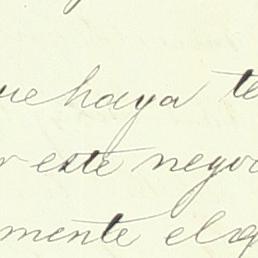 ue haya te
r este nego
mente el q